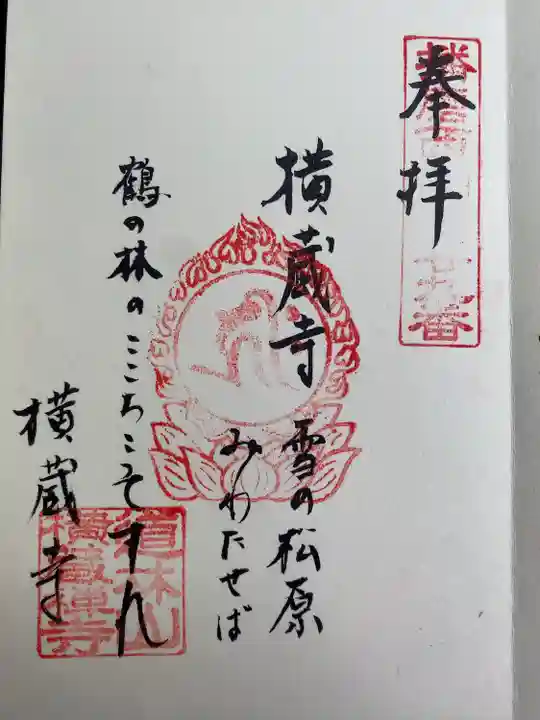 奉拝
横蔵寺 雪の松原
みわたせば
鶴の林の ここちこそすれ
横蔵寺
道林山
横蔵禅寺